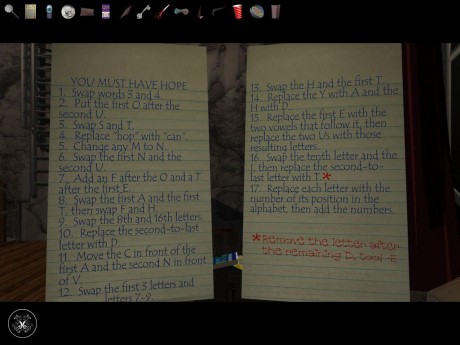 YOU MUST HAVE HOPE
1. Swap words 3 and 4.
2. Put the first O after the
second U.
3. Swap S and T.
4. Replace "hop" with "can".
5. Change any M to N.
6. Swap the first N and the
second U.
7. Add an F after the O and a T
after the first E.
8. Swap the first A and the first
T, then swap F and H.
9. Swap the 8th and 16th letters.
10. Replace the second-to-last
letter with D.
11. Move the C in front of the
first A and the second N in front
of V.
12. Swap the first 3 letters and
letters 7-9.
13. Swap the H and the first T.
14. Replace the Y with A and the
H with D.
15. Replace the first E with the
two vowels that follow it, then
replace the two Us with those
resulting letters.
16. Swap the tenth letter and the
then replace the second-to-
last letter with T.*
17. Replace each letter with the
number of its position in the
alphabet, then add the numbers.
*Remove the letter after
the remaining D, too!